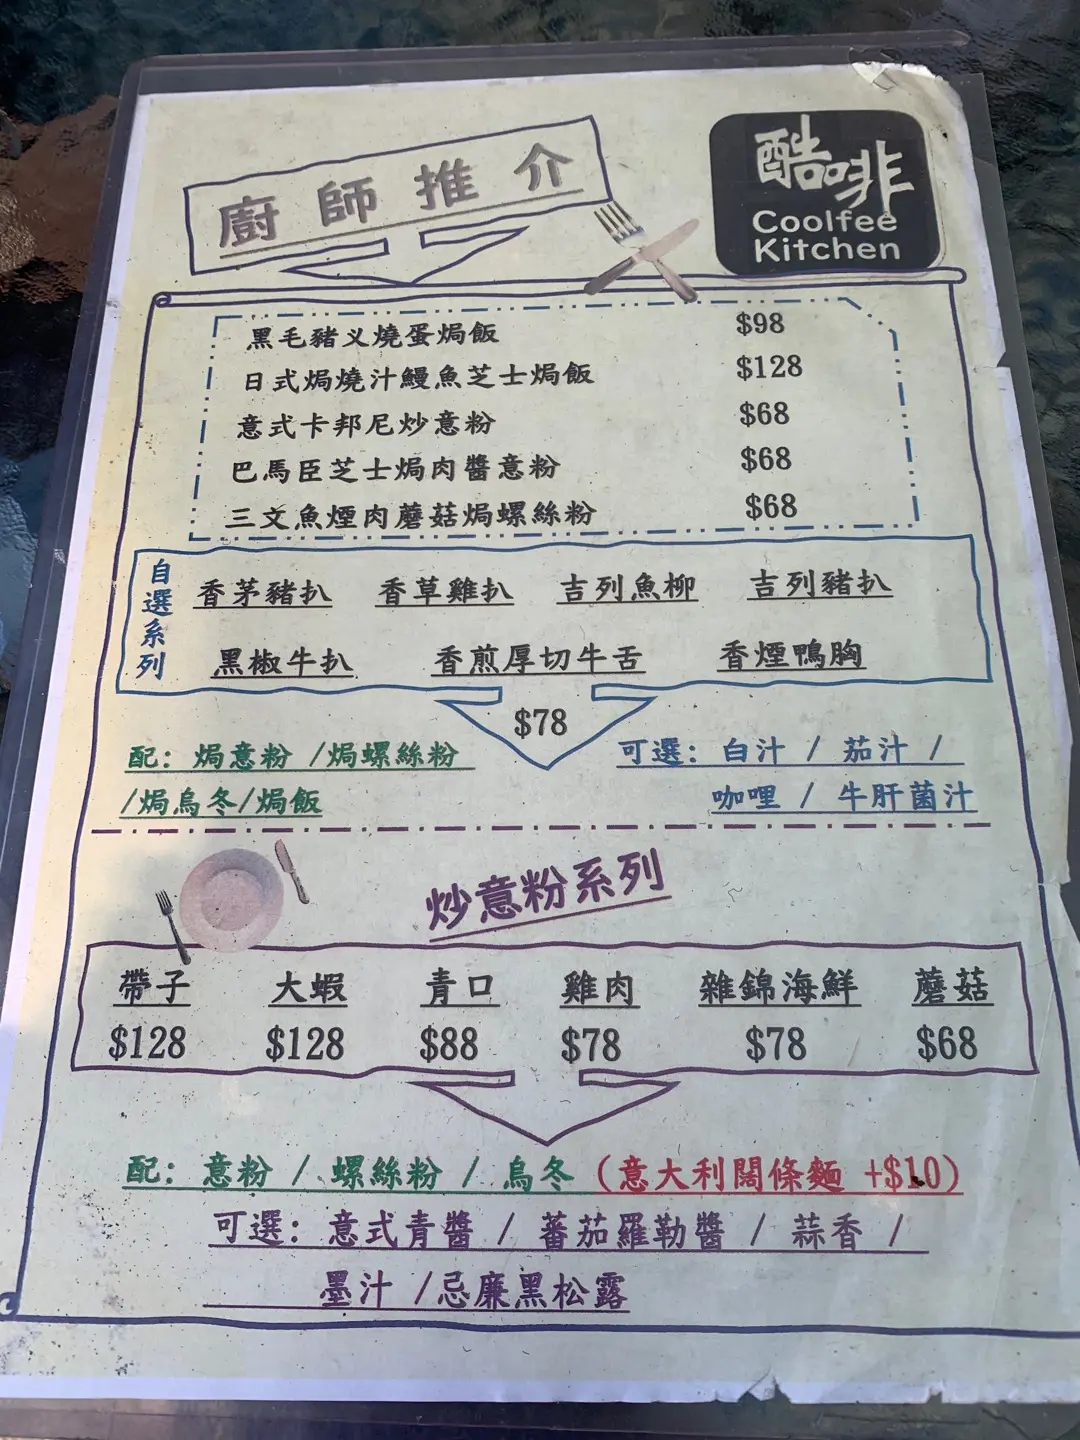 廚師推介
酷啡
Coolfee
Kitchen
黑毛豬义燒蛋焗飯 $98
日式焗燒汁鰻魚芝士焗飯 $128
意式卡邦尼炒意粉 $68
巴馬臣芝士焗肉醬意粉 $68
三文魚煙肉蘑菇焗螺絲粉 $68
自選系列
香茅豬扒 香草雞扒 吉列魚柳 吉列豬扒
黑椒牛扒 香煎厚切牛舌 香煙鴨胸
$78
配: 焗意粉 /焗螺絲粉
/焗烏冬/焗飯
可選: 白汁 / 茄汁 /
咖哩 / 牛肝菌汁
炒意粉系列
帶子 大蝦 青口 雞肉 雜錦海鮮 蘑菇
$128 $128 $88 $78 $78 $68
配: 意粉 / 螺絲粉 / 烏冬 (意大利闊條麵 +$10)
可選: 意式青醬 / 蕃茄羅勒醬 / 蒜香 /
墨汁 /忌廉黑松露